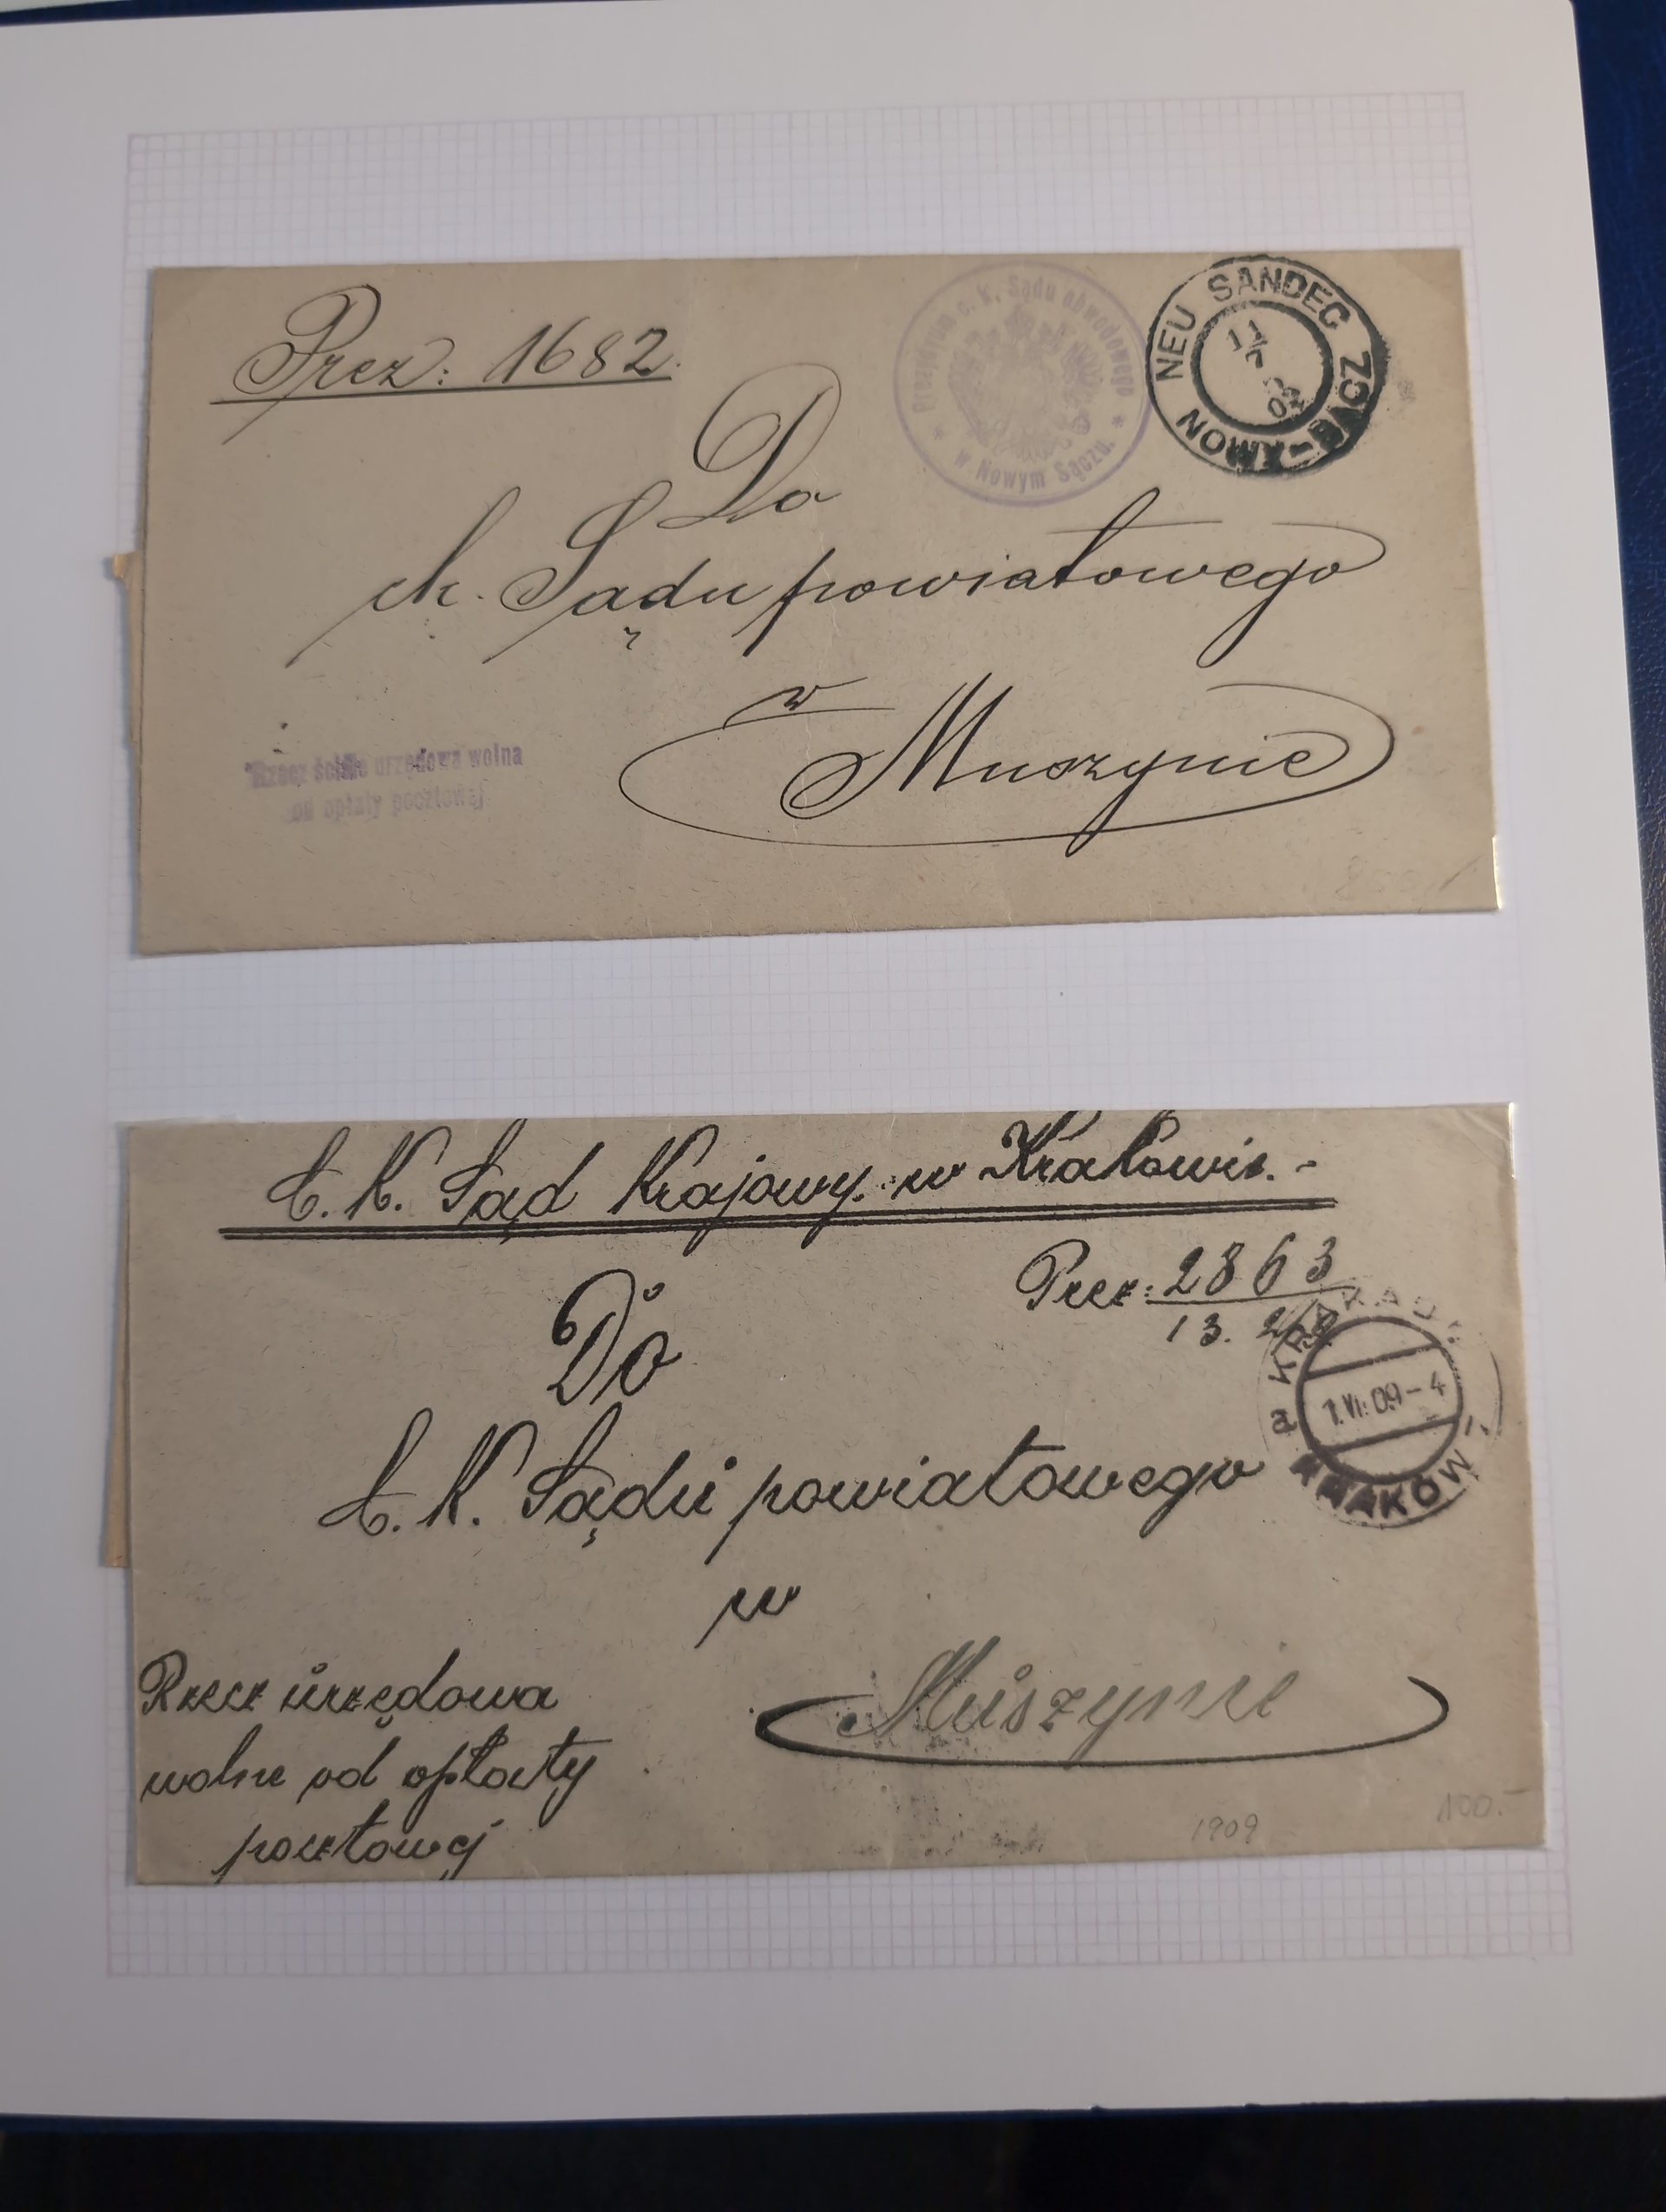 Prez: 1682.
Prezidium c. k. Sądu obwodowego
* w Nowym Sączu. *
NEU SANDEC
NOWY-SĄCZ
11/7
Do
ck. Sądu powiatowego
w
Muszynie
Rzecz ściśle urzędowa wolna
od opłaty pocztowej
C. K. Sąd Krajowy w Krakowie.-
Prez: 2863
13.
KRAKAU 1
a KRAKÓW 1
1.VI.09-4
Do
C. K. Sądu powiatowego
w
Muszynie
Rzecz urzędowa
wolne od opłaty
pocztowej
1909
100.-